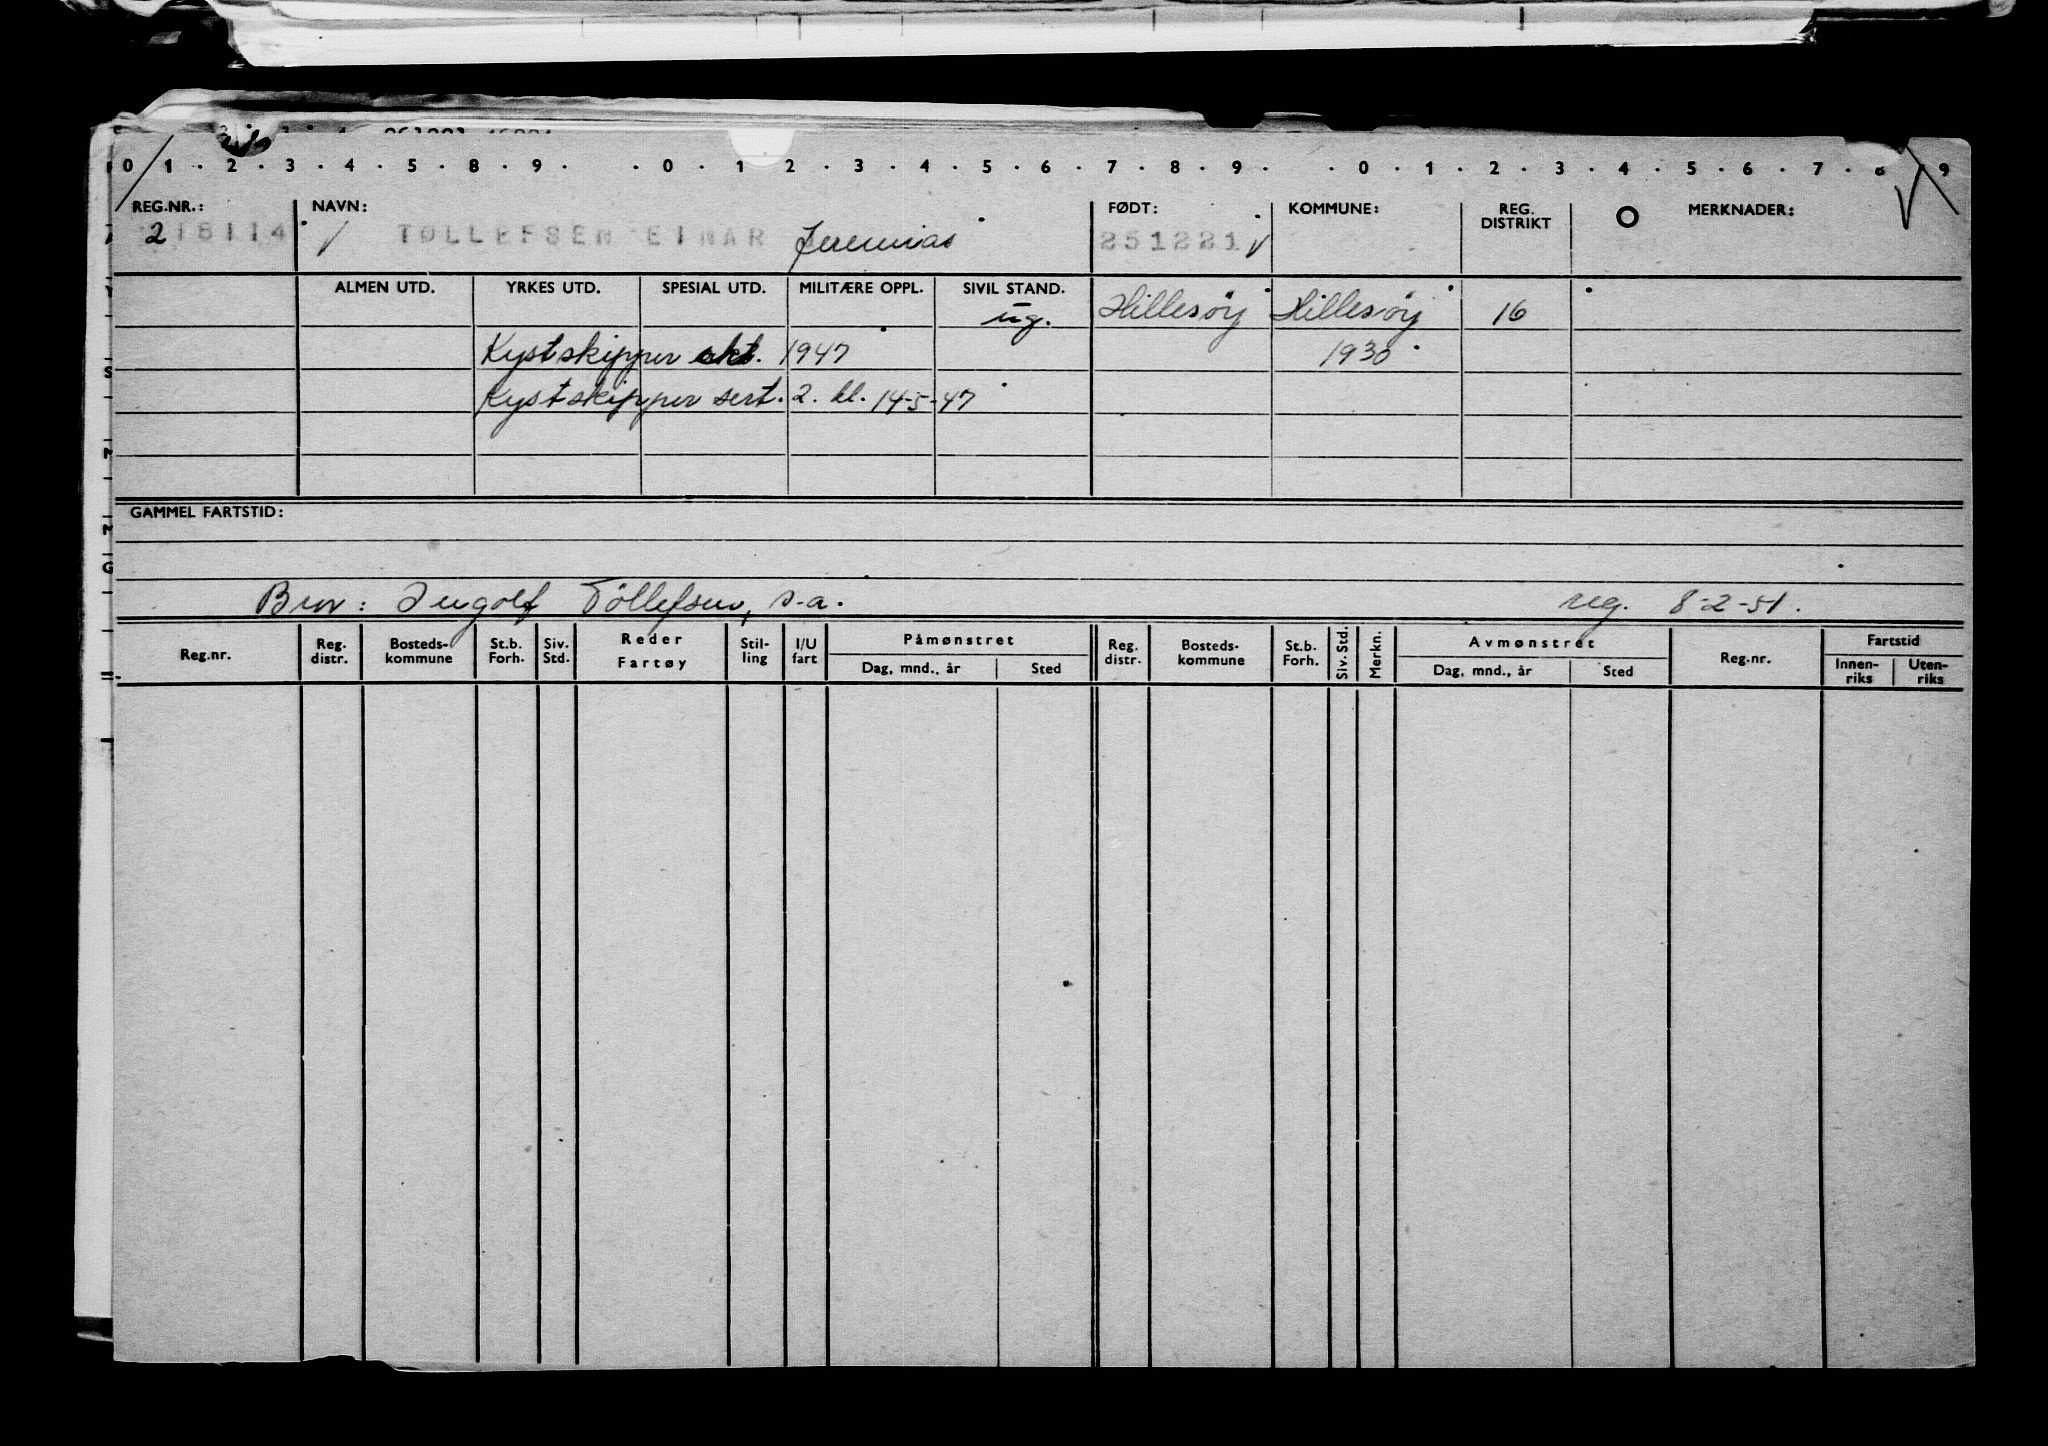 0 1 . 2 . 3 . 4 . 5 . 8 . 9 . . 0 . 1 2 . 3 . 4 . 5 . 6 . 7 . 8 . 9 . . 0 . 1 . 2 . 3 . 4 . 5 . 6 . 7 . 8 9
REG.NR.: NAVN: FØDT: KOMMUNE: REG. DISTRIKT MERKNADER:
218114 TØLLEFSEN EINAR Jeremias 251221
ALMEN UTD. YRKES UTD. SPESIAL UTD. MILITÆRE OPPL. SIVIL STAND.
ug. Hillesöy Hillesöy 16
Kystskipper 1947 1930
Kystskipper sert. 2. kl. 14-5-47
GAMMEL FARTSTID:
Bror: Ingolf Töllefsen, s.a. reg. 8-2-51.
Reg.nr. Reg. distr. Bosteds- kommune St.b. Forh. Siv. Std. Reder Fartøy Stil- ling I/U fart Påmønstret Dag, mnd., år Sted Reg. distr. Bosteds- kommune St.b. Forh. Siv. Std. Merkn. Avmønstret Dag, mnd., år Sted Reg.nr. Fartstid Innen- riks Uten- riks